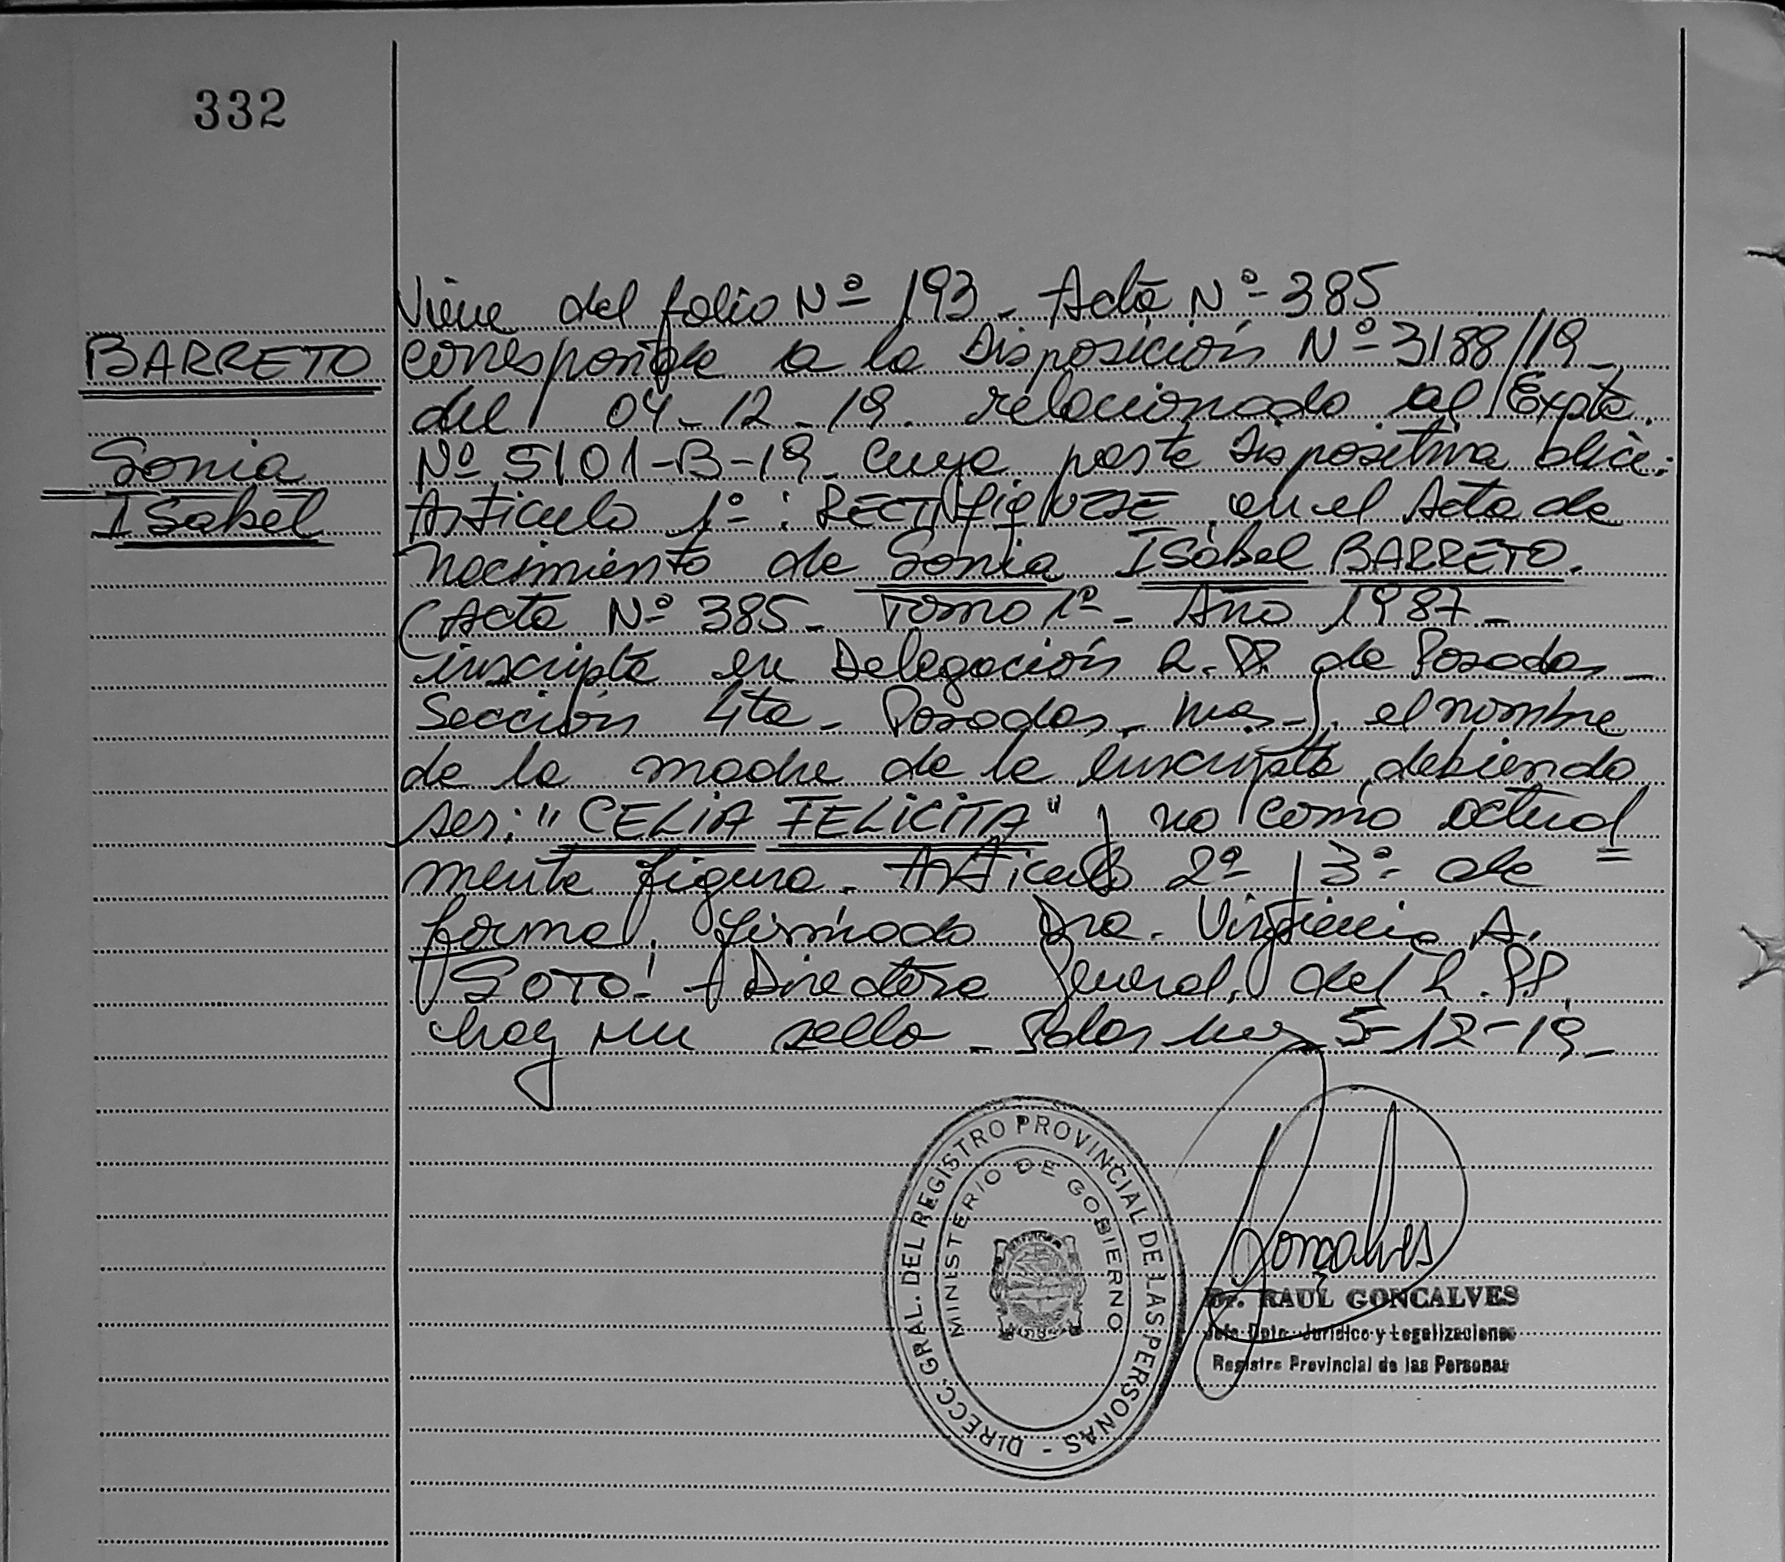 332
BARRETO
Sonia
Isabel
Viene del folio Nº 193 - Acta Nº 385
corresponde a la Disposición Nº 3188/19 -
del 04-12-19 relacionado al Expte.
Nº 5101-B-19. Cuya parte dispositiva dice:
Articulo 1º: RECTIFIQUESE en el Acta de
nacimiento de Sonia Isabel BARRETO.
(Acta Nº 385 - Tomo 1º - Año 1987 -
inscripta en Delegación R.PP. de Posadas -
Sección 4ta - Posadas - Mnes -). el nombre
de la madre de la inscripta, debiendo
ser: "CELIA FELICITA" y no como actual
mente figura. Articulo 2º y 3º de
forma. firmado Dra. Virginia A.
SOTO - Directora General del R.PP.
hay un sello - Pdas Mnes 5-12-19 -
DIRECC. GRAL. DEL REGISTRO PROVINCIAL DE LAS PERSONAS -
MINISTERIO DE GOBIERNO
Goncalves
Dr. RAUL GONCALVES
Jefe Dpto. Jurídico y Legalizaciones
Registro Provincial de las Personas